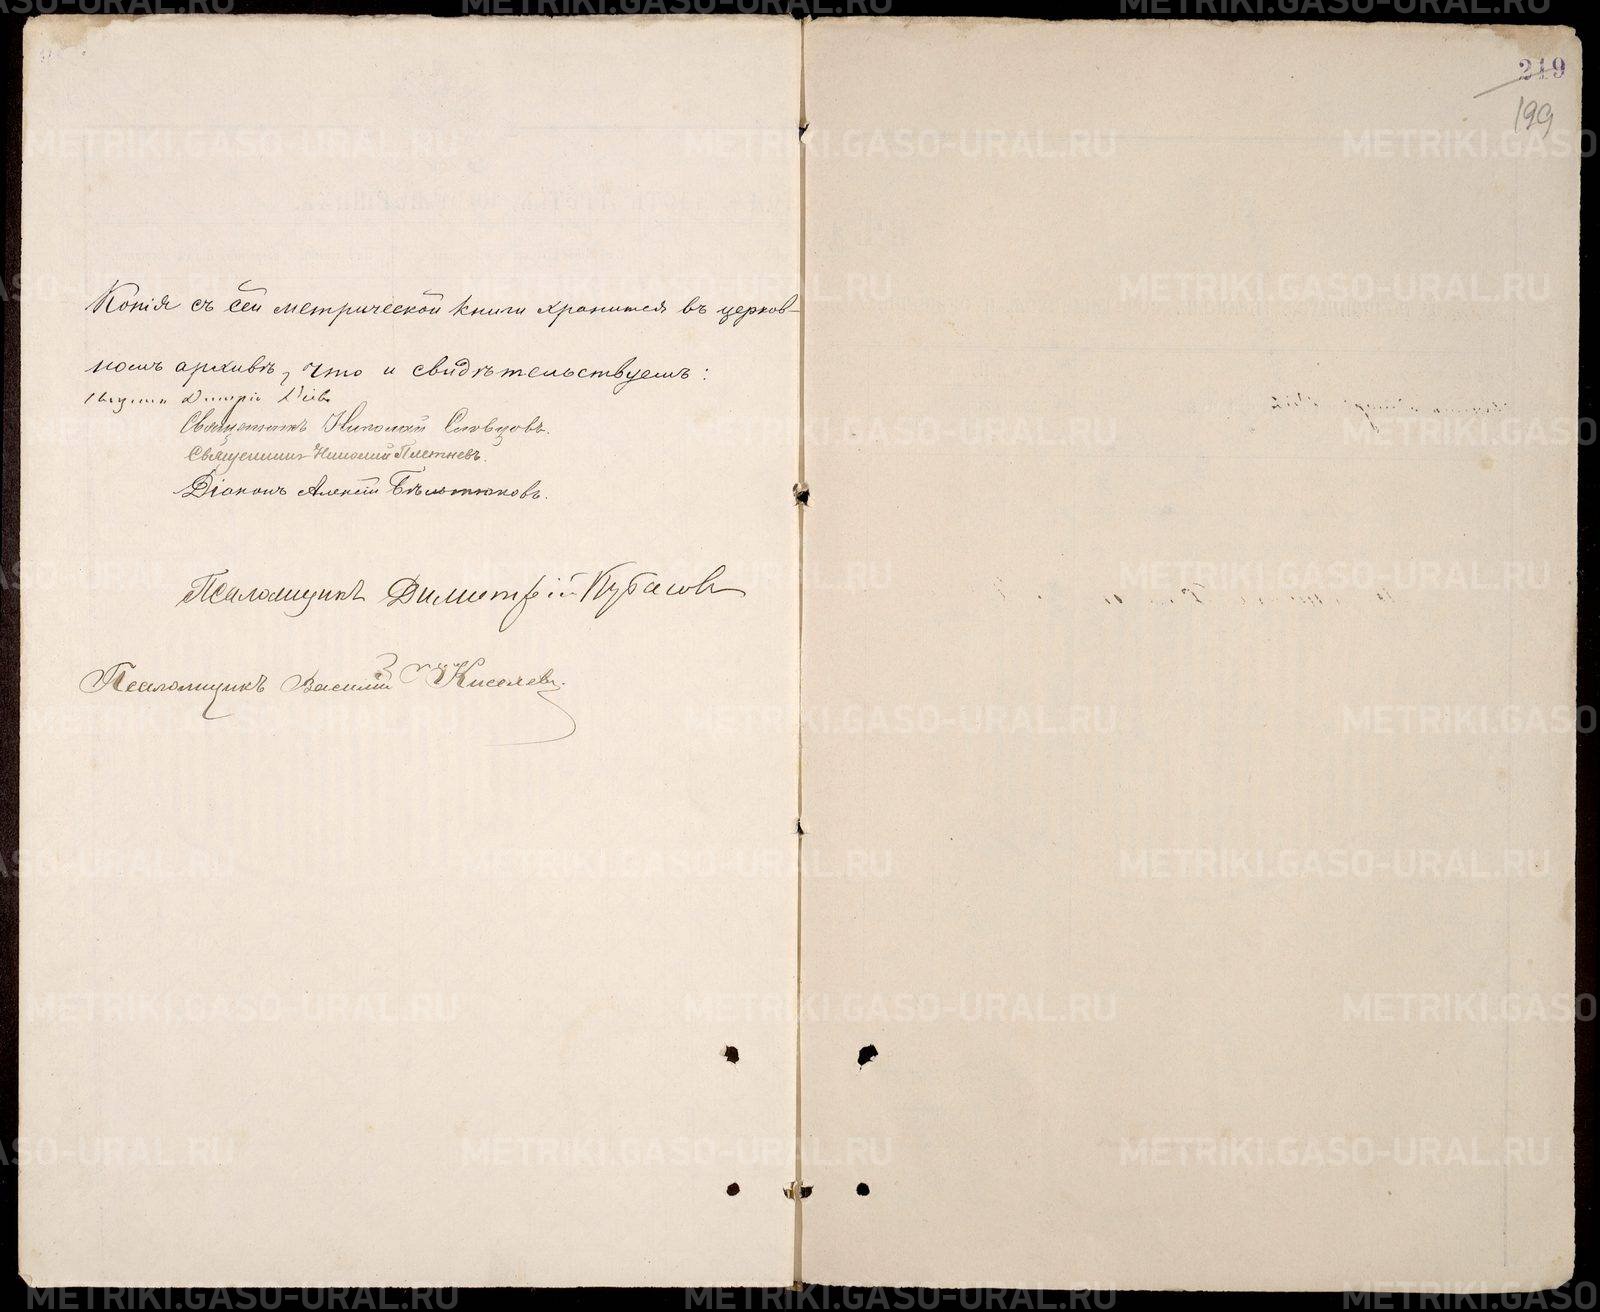 Копія съ сей метрической книги хранится въ церков-
номъ архивѣ, что и свидѣтельствуемъ:
Священникъ Николай Словцовъ.
Священникъ Николай Плетневъ.
Діаконъ Алексій Бѣлотюковъ.
Псаломщикъ Димитрій Кубасовъ
Псаломщикъ Василій Киселевъ.
219
199